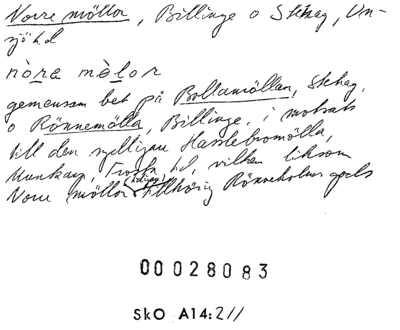 Norre möllor, Billinge o Stehag, On-
sjö hd
nòra mèlor
gemensam bet på Bollamöllan, Stehag,
o Rönnemölla, Billinge, i motsats
till den sydligare Hasslebromölla,
Munkarp, Frosta hd, vilken liksom
Norre möllor (tidigare) tillhörig Rönneholms gods
00028083
SkO A14:2//